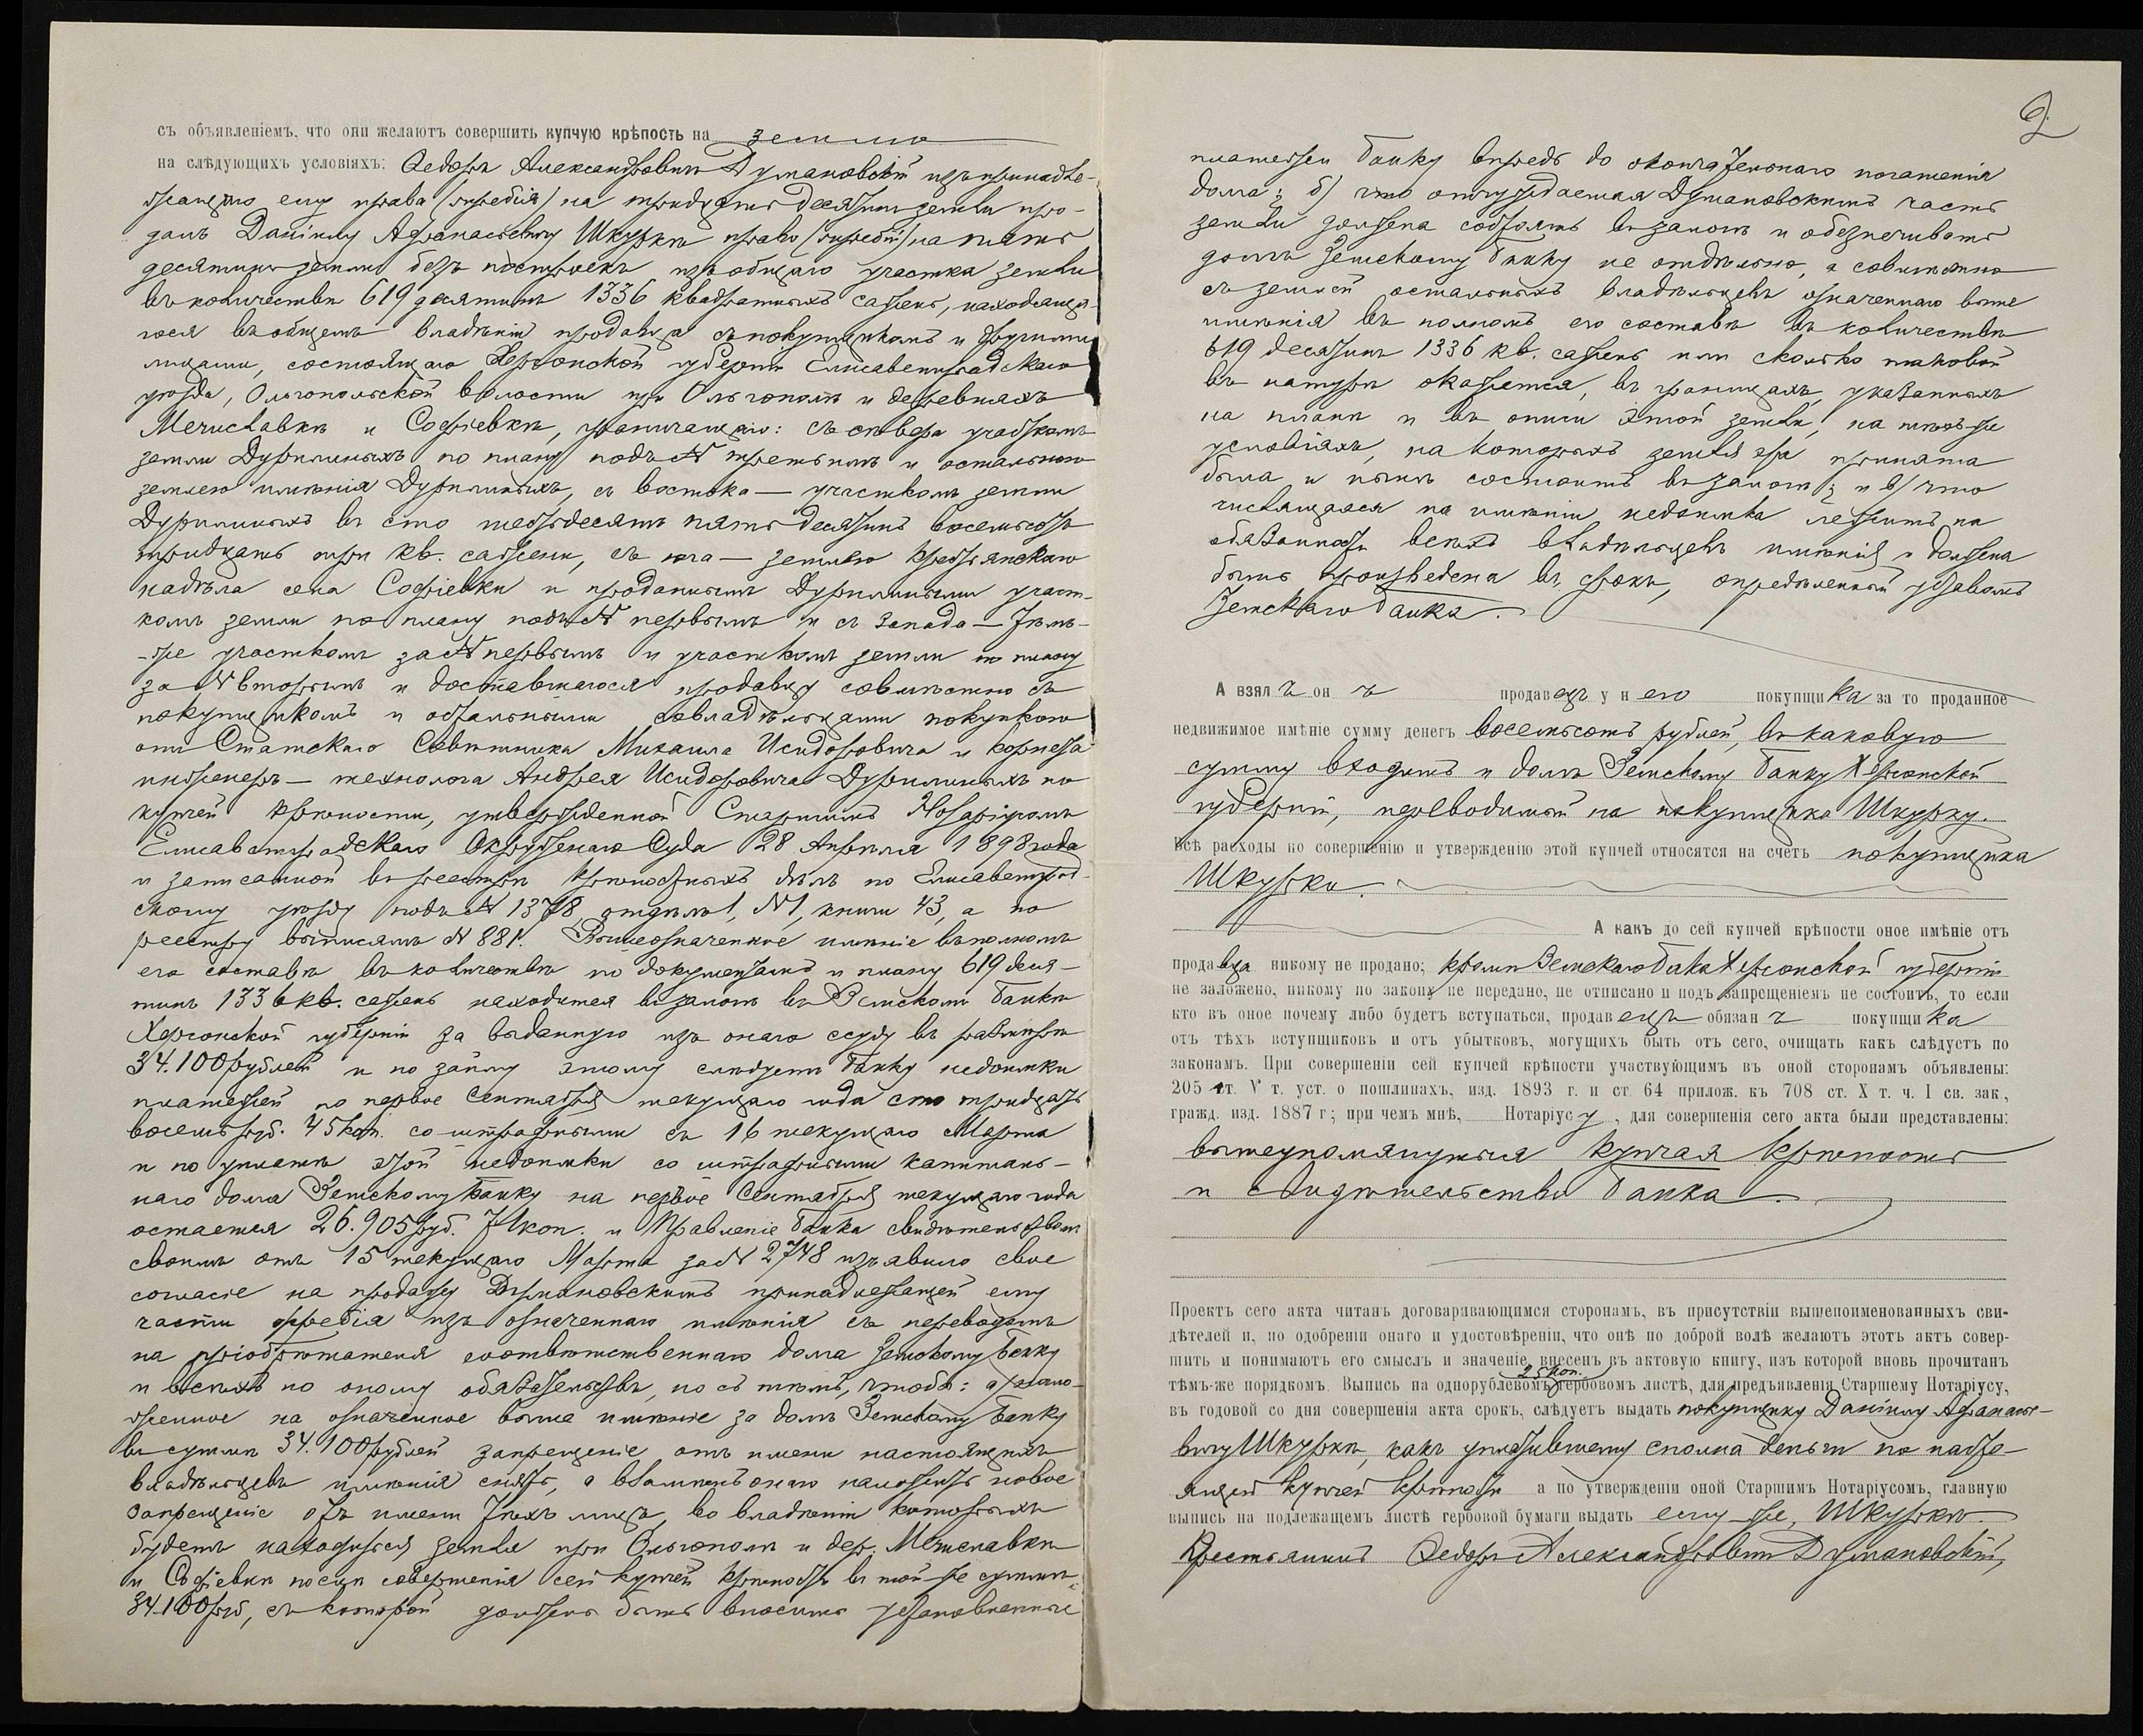 съ объявленіемъ, что они желаютъ совершить купчую крѣпость на землю
на слѣдующихъ условіяхъ: Ѳедоръ Александровичъ Думановскій изъ принадле-
жащаго ему права (жребія) на тридцать десятинъ земли про-
далъ Даніилу Аѳанасьевичу Шкуркѣ право (жребій) на пять
десятинъ земли безъ построекъ изъ общаго участка земли
въ количествѣ 619 десятинъ 1336 квадратныхъ сажень, находящаго-
гося въ общемъ владѣніи продавца съ покупщикомъ и другими
лицами, состоящаго Херсонской губерніи Елисаветградскаго
уѣзда, Ольгопольской волости при Ольгополѣ и деревняхъ
Мечиславкѣ и Софіевкѣ, граничащаго: съ сѣвера участкомъ
земли Дурилиныхъ по плану подъ № третьимъ и остальною
землею имѣнія Дурилиныхъ, съ востока — участкомъ земли
Дурилиныхъ въ сто шестьдесятъ пять десятинъ восемьсотъ
тридцать три кв. сажени, съ юга — землею крестьянскаго
надѣла села Софіевки и проданнымъ Дурилиными участ-
комъ земли по плану подъ № первымъ и съ запада — тѣмъ-
-же участкомъ за № первымъ и участкомъ земли по плану
за № вторымъ и доставшагося продавцу совмѣстно съ
покупщикомъ и остальными совладѣльцами покупкою
отъ Статскаго Совѣтника Михаила Исидоровича и корнета
инженеръ — технолога Андрея Исидоровича Дурилиныхъ по
купчей крѣпости, утвержденной Старшимъ Нотаріусомъ
Елисаветградскаго Окружнаго Суда 28 Апрѣля 1898 года
и записанной въ реестръ крѣпостныхъ дѣлъ по Елисаветград-
скому уѣзду подъ № 1378, отдѣлъ 1, №1, книги 43, а по
реестру выписямъ № 881. Вышеозначенное имѣніе въ полномъ
его составѣ въ количествѣ по документамъ и плану 619 деся-
тинъ 1336 кв. сажень находится въ залогѣ въ Земскомъ Банкѣ
Херсонской губерніи за выданную изъ онаго ссуду въ размѣрѣ
34.100 рублей и по займу этому слѣдуетъ Банку недоимки
платежей по первое Сентября текущаго года сто тридцать
восемь руб. 45 коп. со штрафными съ 16 текущаго Марта
и по уплатѣ этой недоимки со штрафными капиталь-
наго долга Земскому Банку на первое Сентября текущаго года
остается 26.905 руб. 71 коп. и Правленіе Банка свидѣтельствомъ
своимъ отъ 15 текущаго Марта за № 2748 изъявило свое
согласіе на продажу Думановскимъ принадлежащей ему
части жребія изъ означеннаго имѣнія съ переводомъ
на пріобрѣтателя соотвѣтственнаго долга Земскому Банку
и всѣхъ по оному обязательствъ, но съ тѣмъ, чтобы: а) нало-
женное на означенное выше имѣніе за долгъ Земскому Банку
въ суммѣ 34.100 рублей запрещеніе отъ имени настоящихъ
владѣльцевъ имѣнія снять, а взамѣнъ онаго наложить новое
запрещеніе отъ имени тѣхъ лицъ, во владѣніи которыхъ
будетъ находиться земля при Ольгополѣ и дер. Мечиславкѣ
и Софіевкѣ послѣ совершенія сей купчей крѣпости въ той-же суммѣ
34.100 руб, съ которой должны быть вносимы установленные
2
платежи Банку впредь до окончательнаго погашенія
долга; б) что отчуждаемая Думановскимъ часть
земли должна состоять въ залогѣ и обезпечивать
долгъ Земскому Банку не отдѣльно, а совмѣстно
съ землей остальныхъ владѣльцевъ означеннаго выше
имѣнія въ полномъ его составѣ въ количествѣ
619 десятинъ 1336 кв. сажень или сколько таковой
въ натурѣ окажется, въ границахъ, указанныхъ
на планѣ и въ описи этой земли, на тѣхъ-же
условіяхъ, на которыхъ земля эта принята
была и нынѣ состоитъ въ залогѣ; и в) что
числящаяся на имѣніи недоимка лежитъ на
обязанности всѣхъ владѣльцевъ имѣнія и должна
быть произведена въ срокъ, опредѣленный уставомъ
Земскаго Банка.
А взялъ онъ продавецъ у него покупщика за то проданное
недвижимое имѣніе сумму денегъ восемьсотъ рублей, въ каковую
сумму входитъ и долгъ Земскому Банку Херсонской
губерніи, переводимый на покупщика Шкурку.
Всѣ расходы по совершенію и утвержденію этой купчей относятся на счетъ покупщика
Шкурки.
А какъ до сей купчей крѣпости оное имѣніе отъ
продавца никому не продано; кромѣ Земскаго Банка Херсонской губерніи
не заложено, никому по закону не передано, не отписано и подъ запрещеніемъ не состоитъ, то если
кто въ оное почему либо будетъ вступаться, продавецъ обязанъ покупщика
отъ тѣхъ вступщиковъ и отъ убытковъ, могущихъ быть отъ сего, очищать какъ слѣдуетъ по
законамъ. При совершеніи сей купчей крѣпости участвующимъ въ оной сторонамъ объявлены:
205 ст. V т. уст. о пошлинахъ, изд. 1893 г. и ст 64 прилож. къ 708 ст. X т. ч. I св. зак.,
гражд. изд. 1887 г; при чемъ мнѣ, Нотаріусу, для совершенія сего акта были представлены:
вышеупомянутыя купчая крѣпость
и свидѣтельство Банка.
Проектъ сего акта читанъ договаривающимся сторонамъ, въ присутствіи вышепоименованныхъ сви-
дѣтелей и, по одобреніи онаго и удостовѣреніи, что онѣ по доброй волѣ желаютъ этотъ актъ совер-
шить и понимаютъ его смыслъ и значеніе, внесенъ въ актовую книгу, изъ которой вновь прочитанъ
25 коп.
тѣмъ-же порядкомъ. Выпись на однорублевомъ гербовомъ листѣ, для предъявленія Старшему Нотаріусу,
въ годовой со дня совершенія акта срокъ, слѣдуетъ выдать покупщику Даніилу Аѳанасье-
вичу Шкуркѣ, какъ уплатившему сполна деньги по насто-
ящей купчей крѣпости а по утвержденіи оной Старшимъ Нотаріусомъ, главную
выпись на подлежащемъ листѣ гербовой бумаги выдать ему-же, Шкуркѣ.
Крестьянинъ Ѳедоръ Александровичъ Думановскій,